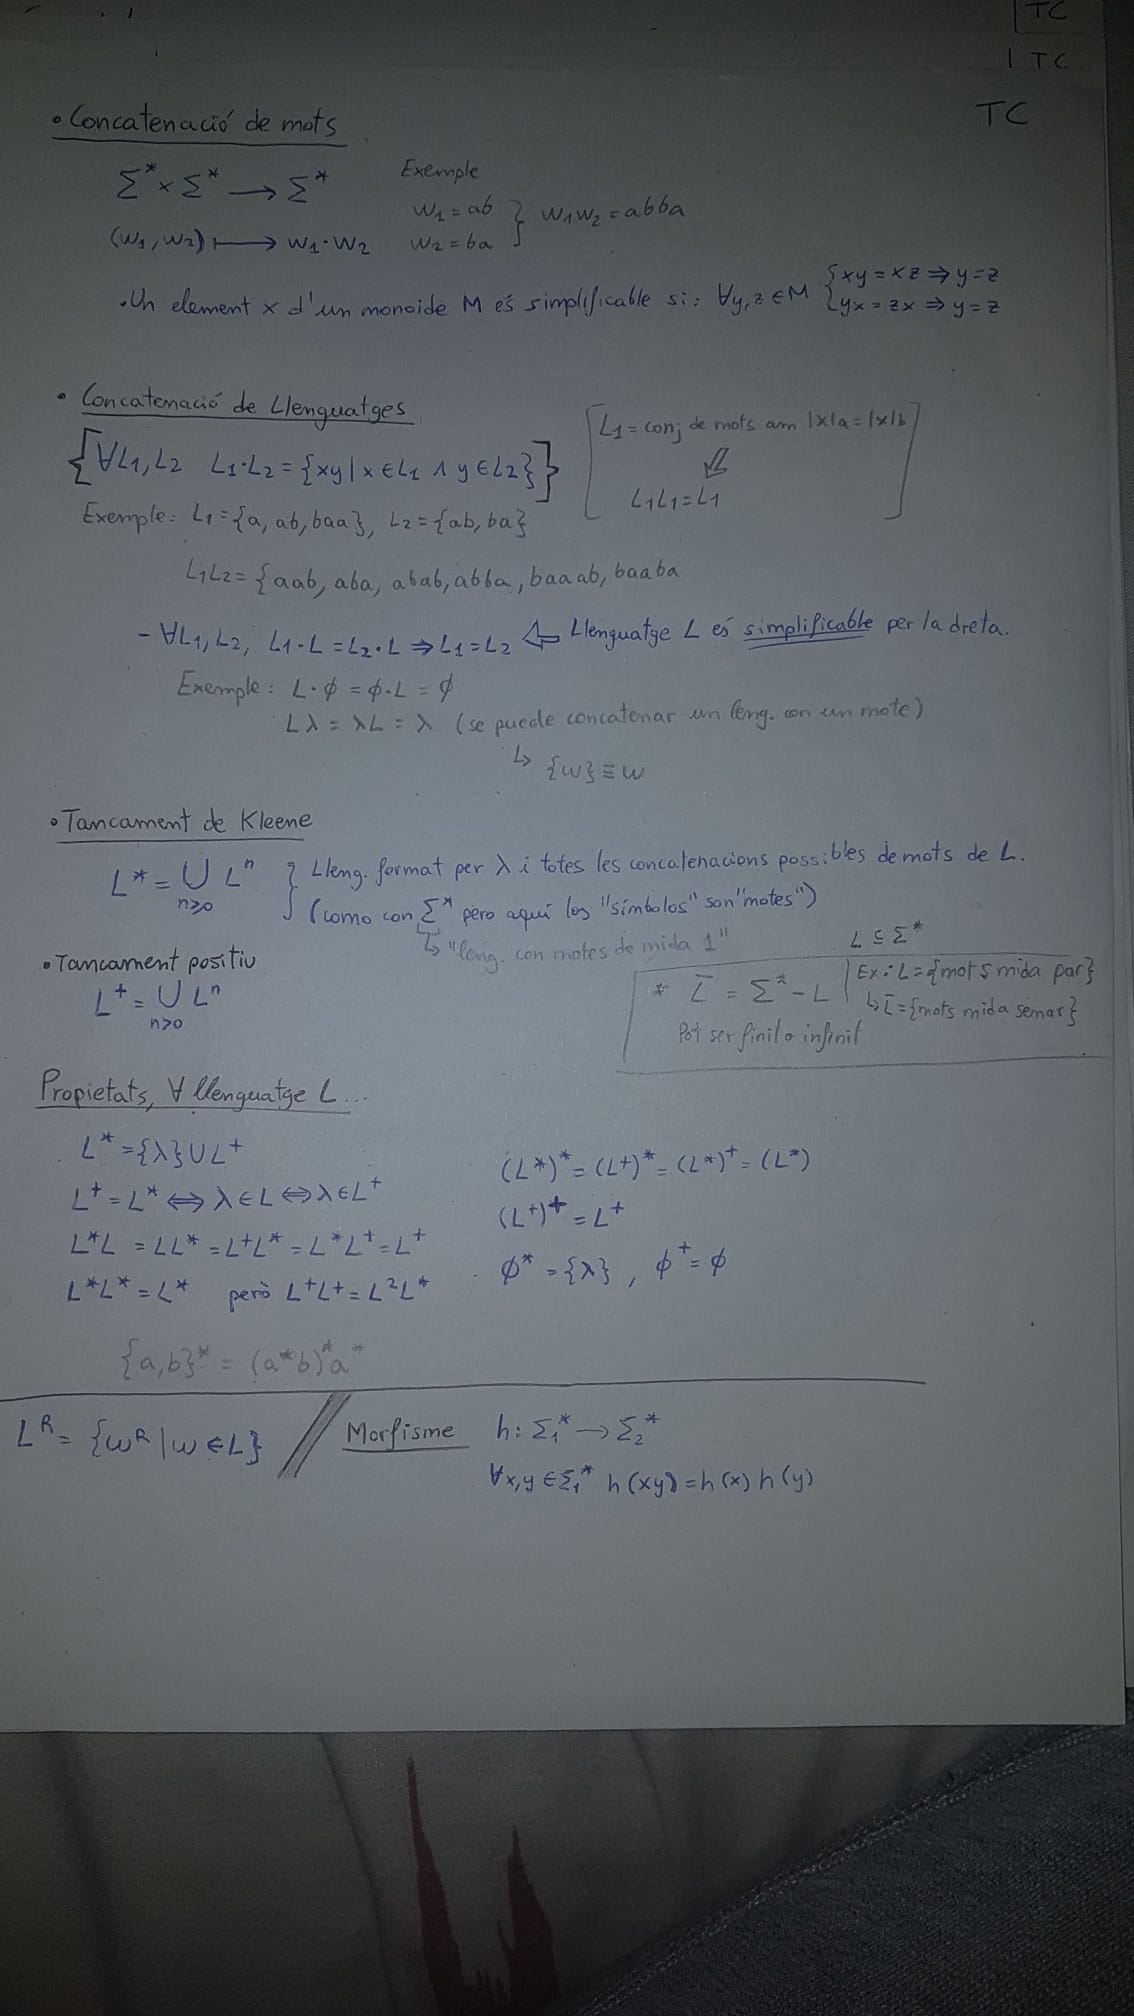 TC
TC
TC
• Concatenació de mots
Σ* × Σ* ⟶ Σ*
(w₁, w₂) ⟼ w₁·w₂
Exemple
w₁ = ab
w₂ = ba } w₁w₂ = abba
• Un element x d'un monoide M és simplificable si: ∀y,z ∈ M { xy = xz ⇒ y = z
yx = zx ⇒ y = z
• Concatenació de Llenguatges
{[∀L₁, L₂ L₁·L₂ = {xy | x ∈ L₁ ∧ y ∈ L₂}]}
[L₁ = conj de mots am |x|a = |x|b]
⇓
L₁L₁ = L₁
Exemple: L₁ = {a, ab, baa}, L₂ = {ab, ba}
L₁L₂ = {aab, aba, abab, abba, baaab, baaba
- ∀L₁, L₂, L₁·L = L₂·L ⇒ L₁ = L₂ ⇐ Llenguatge L és simplificable per la dreta.
Exemple: L·∅ = ∅·L = ∅
Lλ = λL = λ (se puede concatenar un leng. con un mote)
↳ {w} ≡ w
• Tancament de Kleene
L* = ∪ Lⁿ
n≥0
} Lleng. format per λ i totes les concatenacions possibles de mots de L.
(como con Σ* pero aquí los "símbolos" son "motes")
↳ "leng. con motes de mida 1"
• Tancament positiu
L⁺ = ∪ Lⁿ
n>0
L ⊆ Σ*
* L̅ = Σ* - L | Ex: L = {mots mida par}
↳ L̅ = {mots mida senar}
Pot ser finit o infinit
Propietats, ∀ llenguatge L...
L* = {λ} ∪ L⁺
L⁺ = L* ⇔ λ ∈ L ⇔ λ ∈ L⁺
L*L = LL* = L⁺L* = L*L⁺ = L⁺
L*L* = L* però L⁺L⁺ = L²L*
(L*)* = (L⁺)* = (L*)⁺ = (L*)
(L⁺)⁺ = L⁺
∅* = {λ}, ∅⁺ = ∅
{a,b}* = (a*b)*a*
Lᴿ = {wᴿ | w ∈ L}
Morfisme h: Σ₁* → Σ₂*
∀x,y ∈ Σ₁* h(xy) = h(x) h(y)